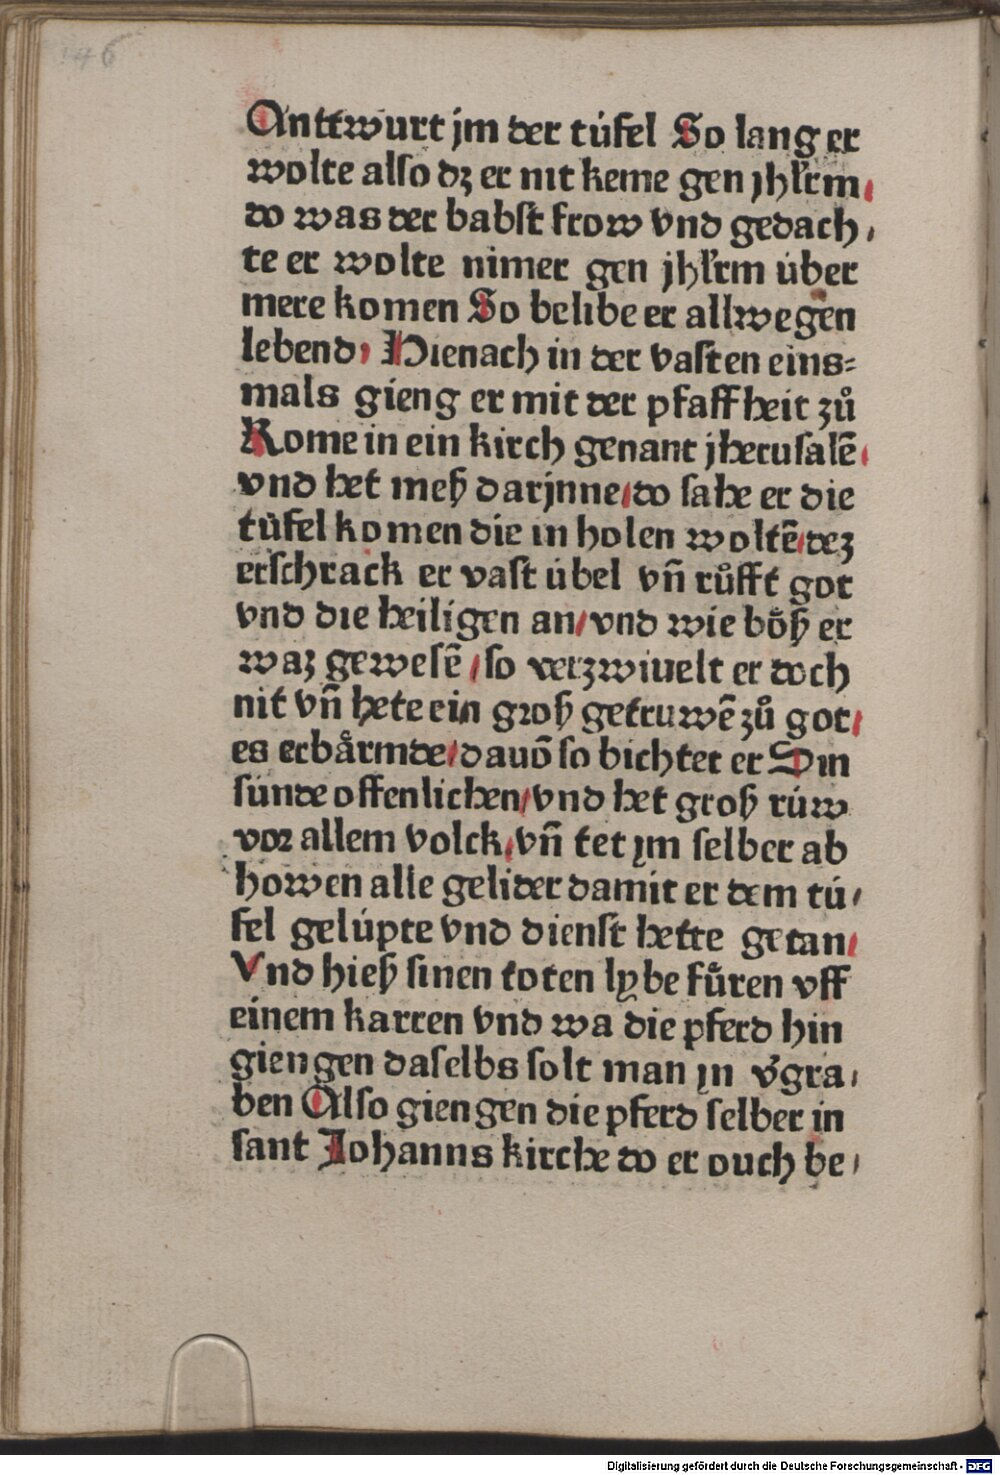 146
Anttwurt jm der túfel So lang er
wolte also dʒ er nit keme gen jhľrm/
do was der babst frow vnd gedach/
te er wolte nimer gen jhľrm úber
mere komen So belibe er allwegen
lebend/ Hienach in der vasten eins⸗
mals gieng er mit der pfaffheit zů
Rome in ein kirch genant jherusalē/
vnd het meß darjnne/do sahe er die
túfel komen die in holen woltē/dez
erschrack er vast úbel vñ růfft got
vnd die heiligen an/vnd wie bo̊ß er
waz gewesē/so verzwiuelt er doch
nit vñ hete ein groß getruwē zů got/
es erbårmde/dauō so bichtet er Sin
súnde offenlichen/vnd het groß rúw
vor allem volck/vñ tet jm selber ab
howen alle gelider damit er dem tú/
fel gelúpte vnd dienst hette getan/
Vnd hieß sinen toten lybe fůren vff
einem karren vnd wa die pferd hin
giengen daselbs solt man jn v̓gra/
ben Also giengen die pferd selber in
sant Johanns kirche do er ouch be/
Digitalisierung gefördert durch die Deutsche Forschungsgemeinschaft - DFG